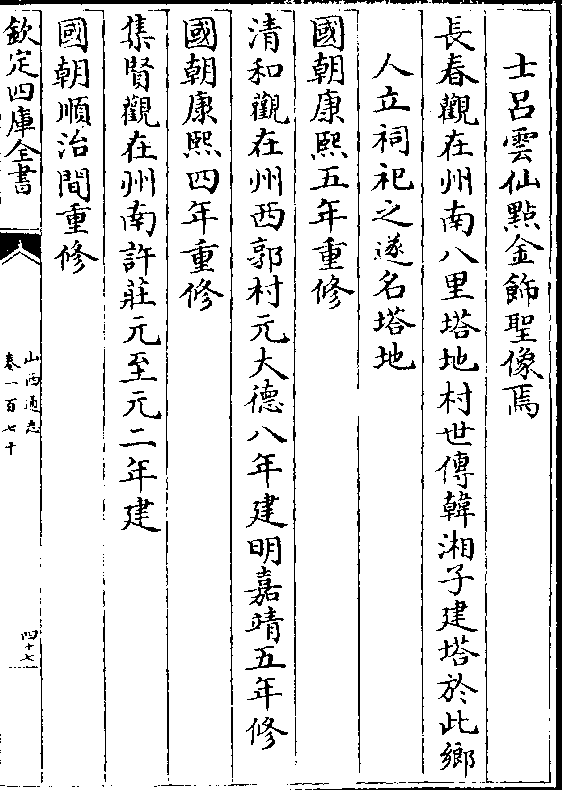 士呂雲仙點金飾聖像焉
長春觀在州南八里塔地村世傳韓湘子建塔於此鄉
人立祠祀之遂名塔地
國朝康熙五年重修
清和觀在州西郭村元大德八年建明嘉靖五年修
國朝康熙四年重修
集賢觀在州南許莊元至元二年建
國朝順治間重修
欽定四庫全書
山西通志
卷一百七十
四十七